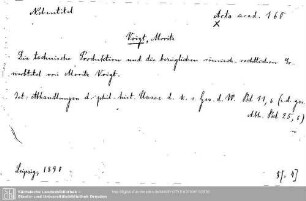 Nebentitel
Acta acad. 160
X
Voigt, Moritz
Die technische Produktion und die bezüglichen römisch-rechtlichen Er-
werbstitel von Moritz Voigt.
In: Abhandlungen d. phil. hist. Classe d. k. s. Ges. d. W. Bd 11, (i.d. gz.
Abh. Bd 25,
Leipzig, 1890
Sächsische Landesbibliothek -
Staats- und Universitätsbibliothek Dresden